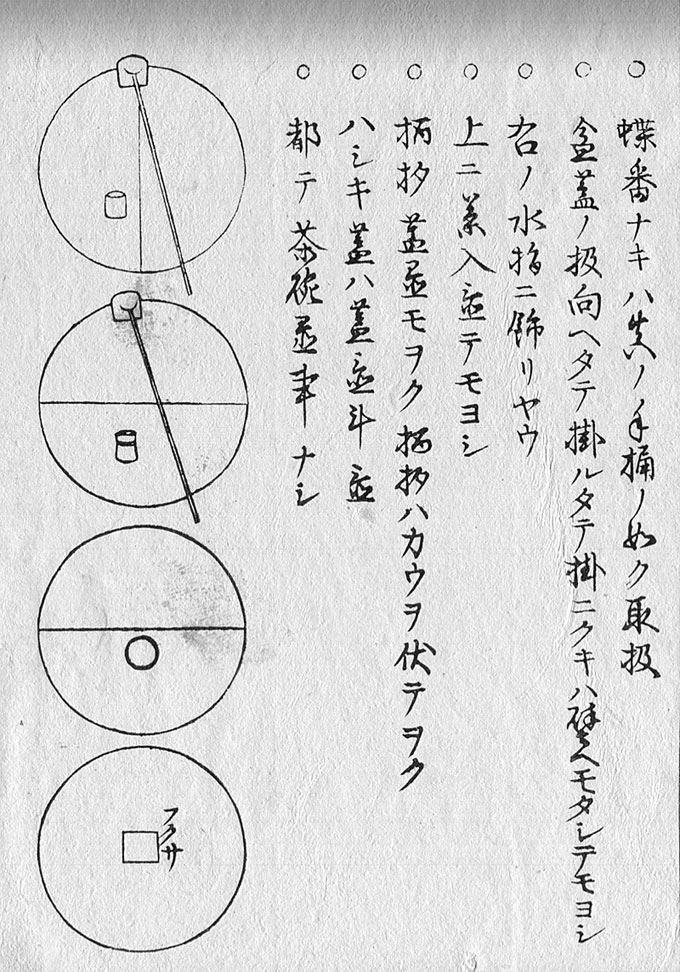 ○蝶番ナキハ真ノ手桶ノ如ク取扱
○盆蓋ノ扱向ヘタテ掛ルタテ掛ニクキハ壁ヘモタシテモヨシ
○右ノ水指ニ飾リヤウ
○上ニ茶入置テモヨシ
○柄杓蓋置モヲク柄杓ハカウヲ伏テヲク
○ハシキ蓋ハ蓋置斗置
○都テ茶碗置事ナシ
フクサ